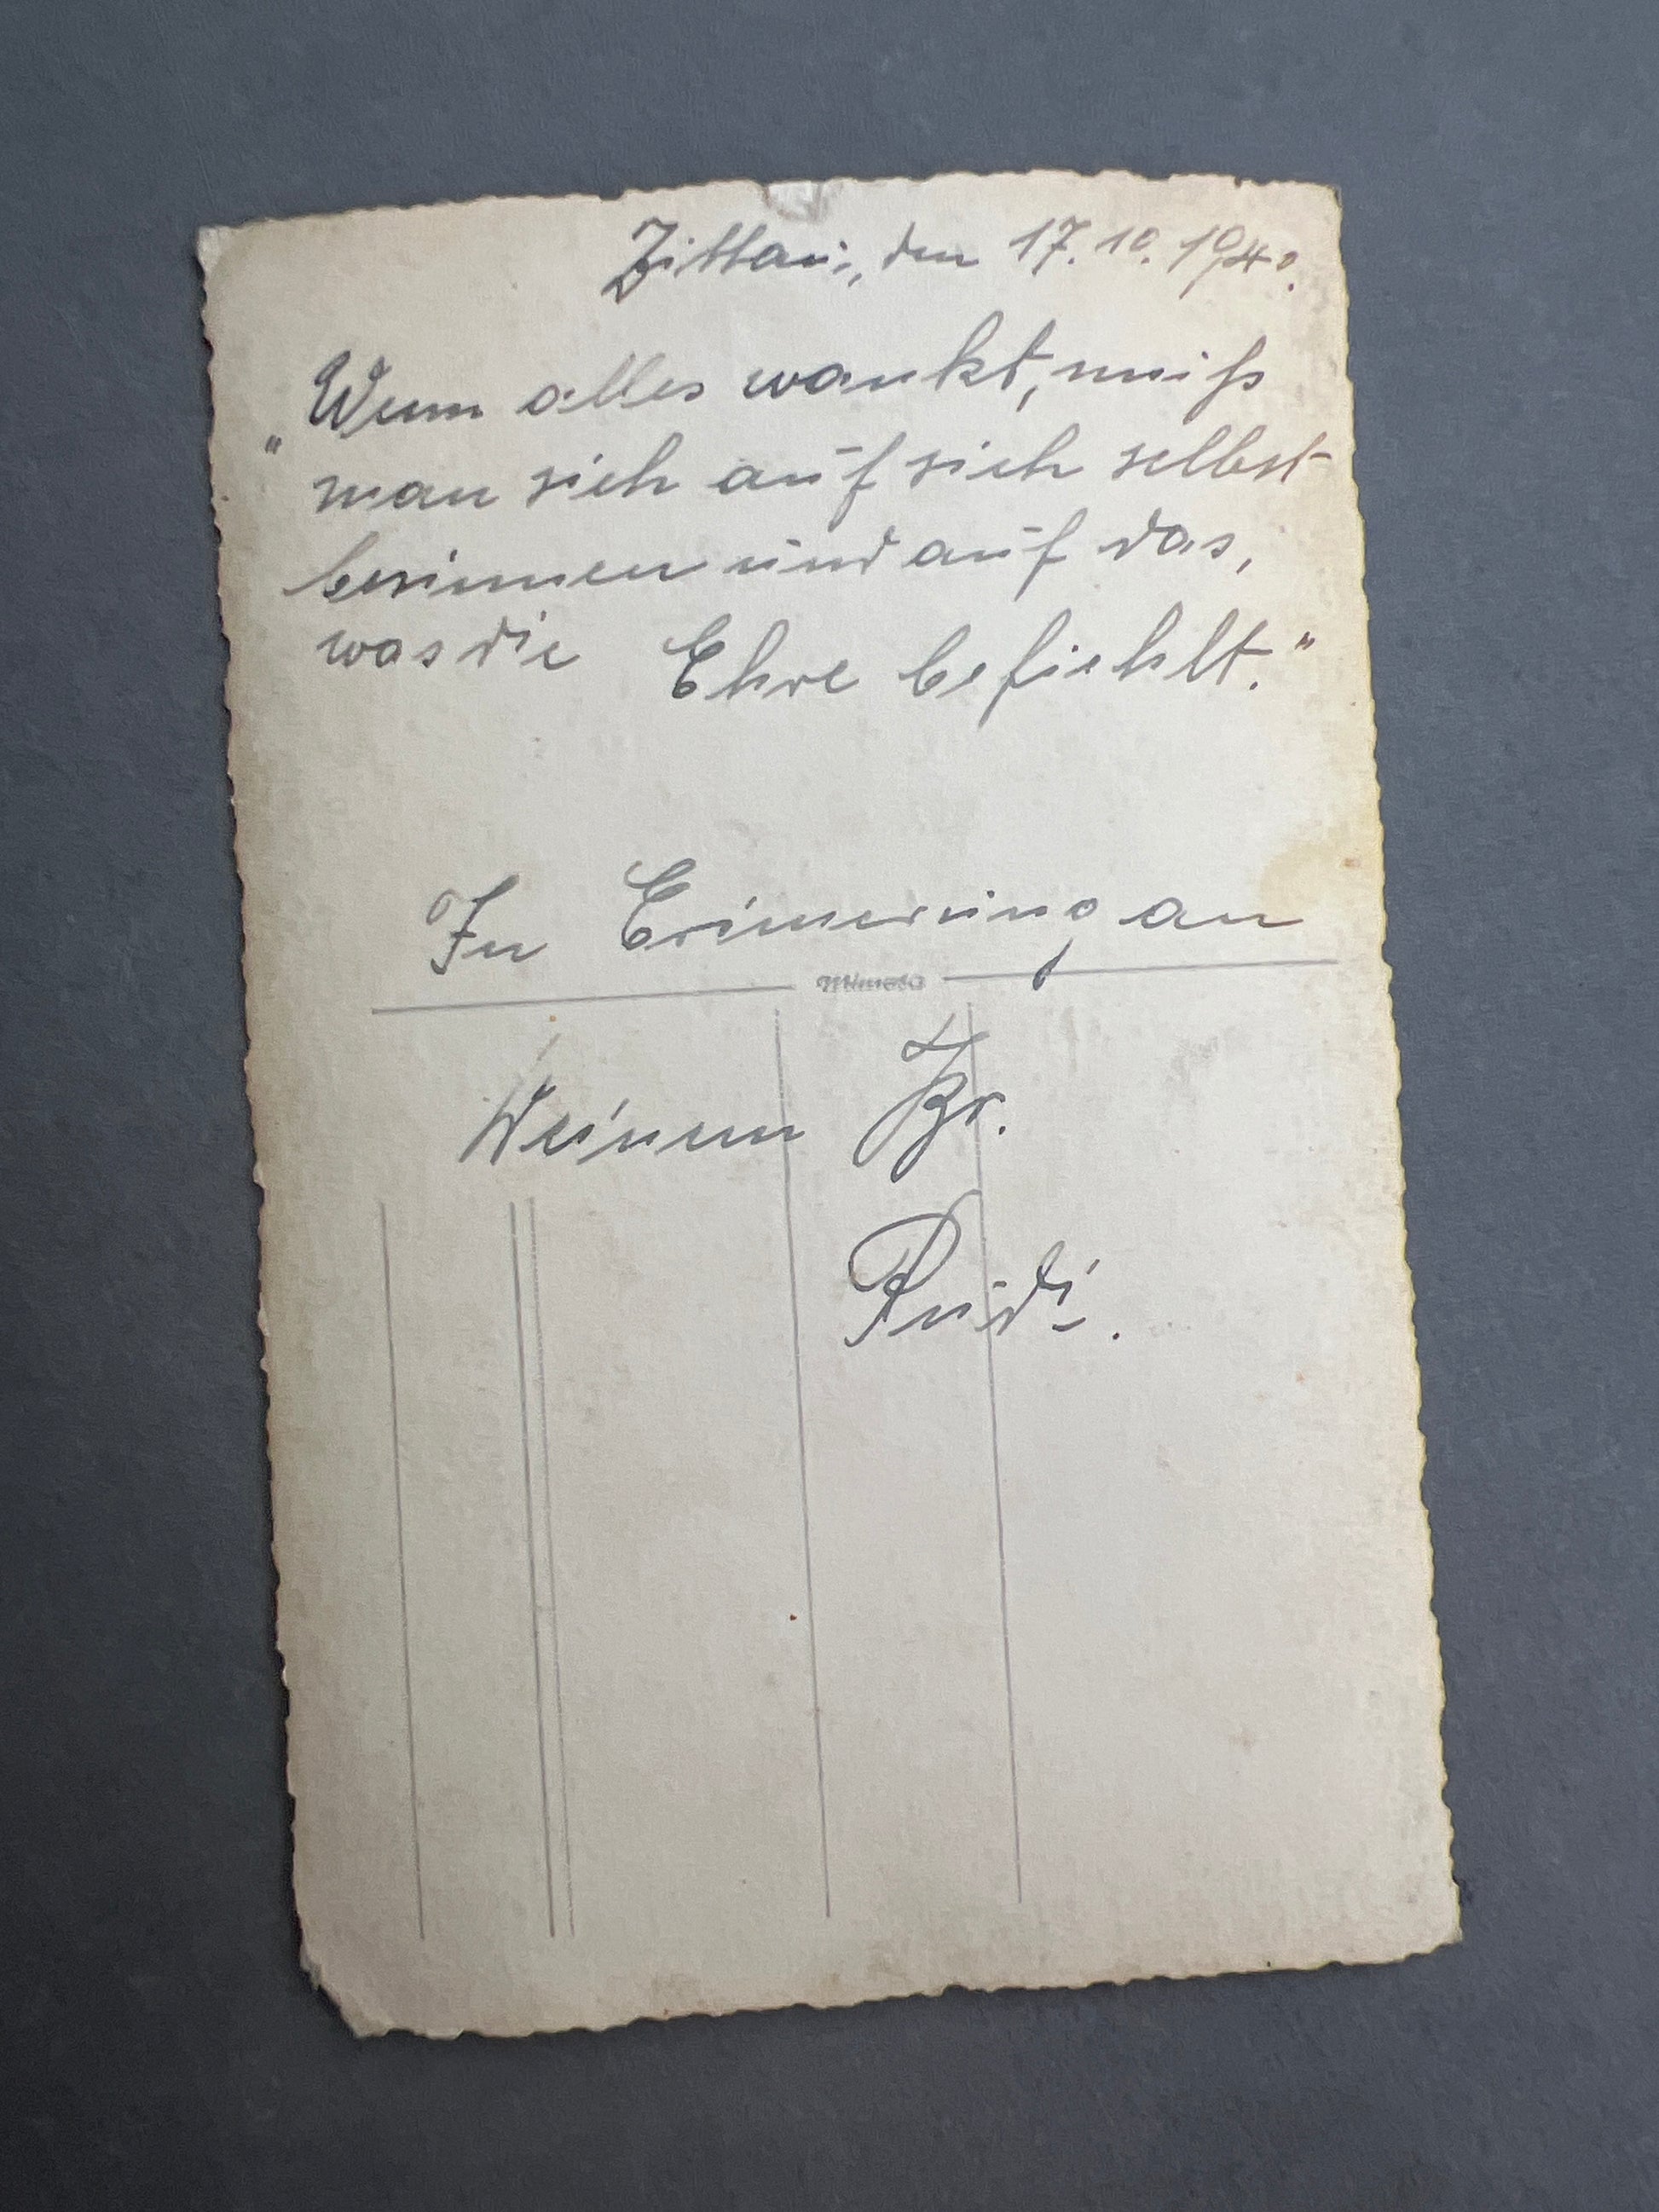 Zittau, den 17.10.1940.
„Wenn alles wankt, muß
man sich auf sich selbst
besinnen und auf das,
was die Ehre befiehlt."
In Erinnerung an
Mimosa
Br.
Rudi.